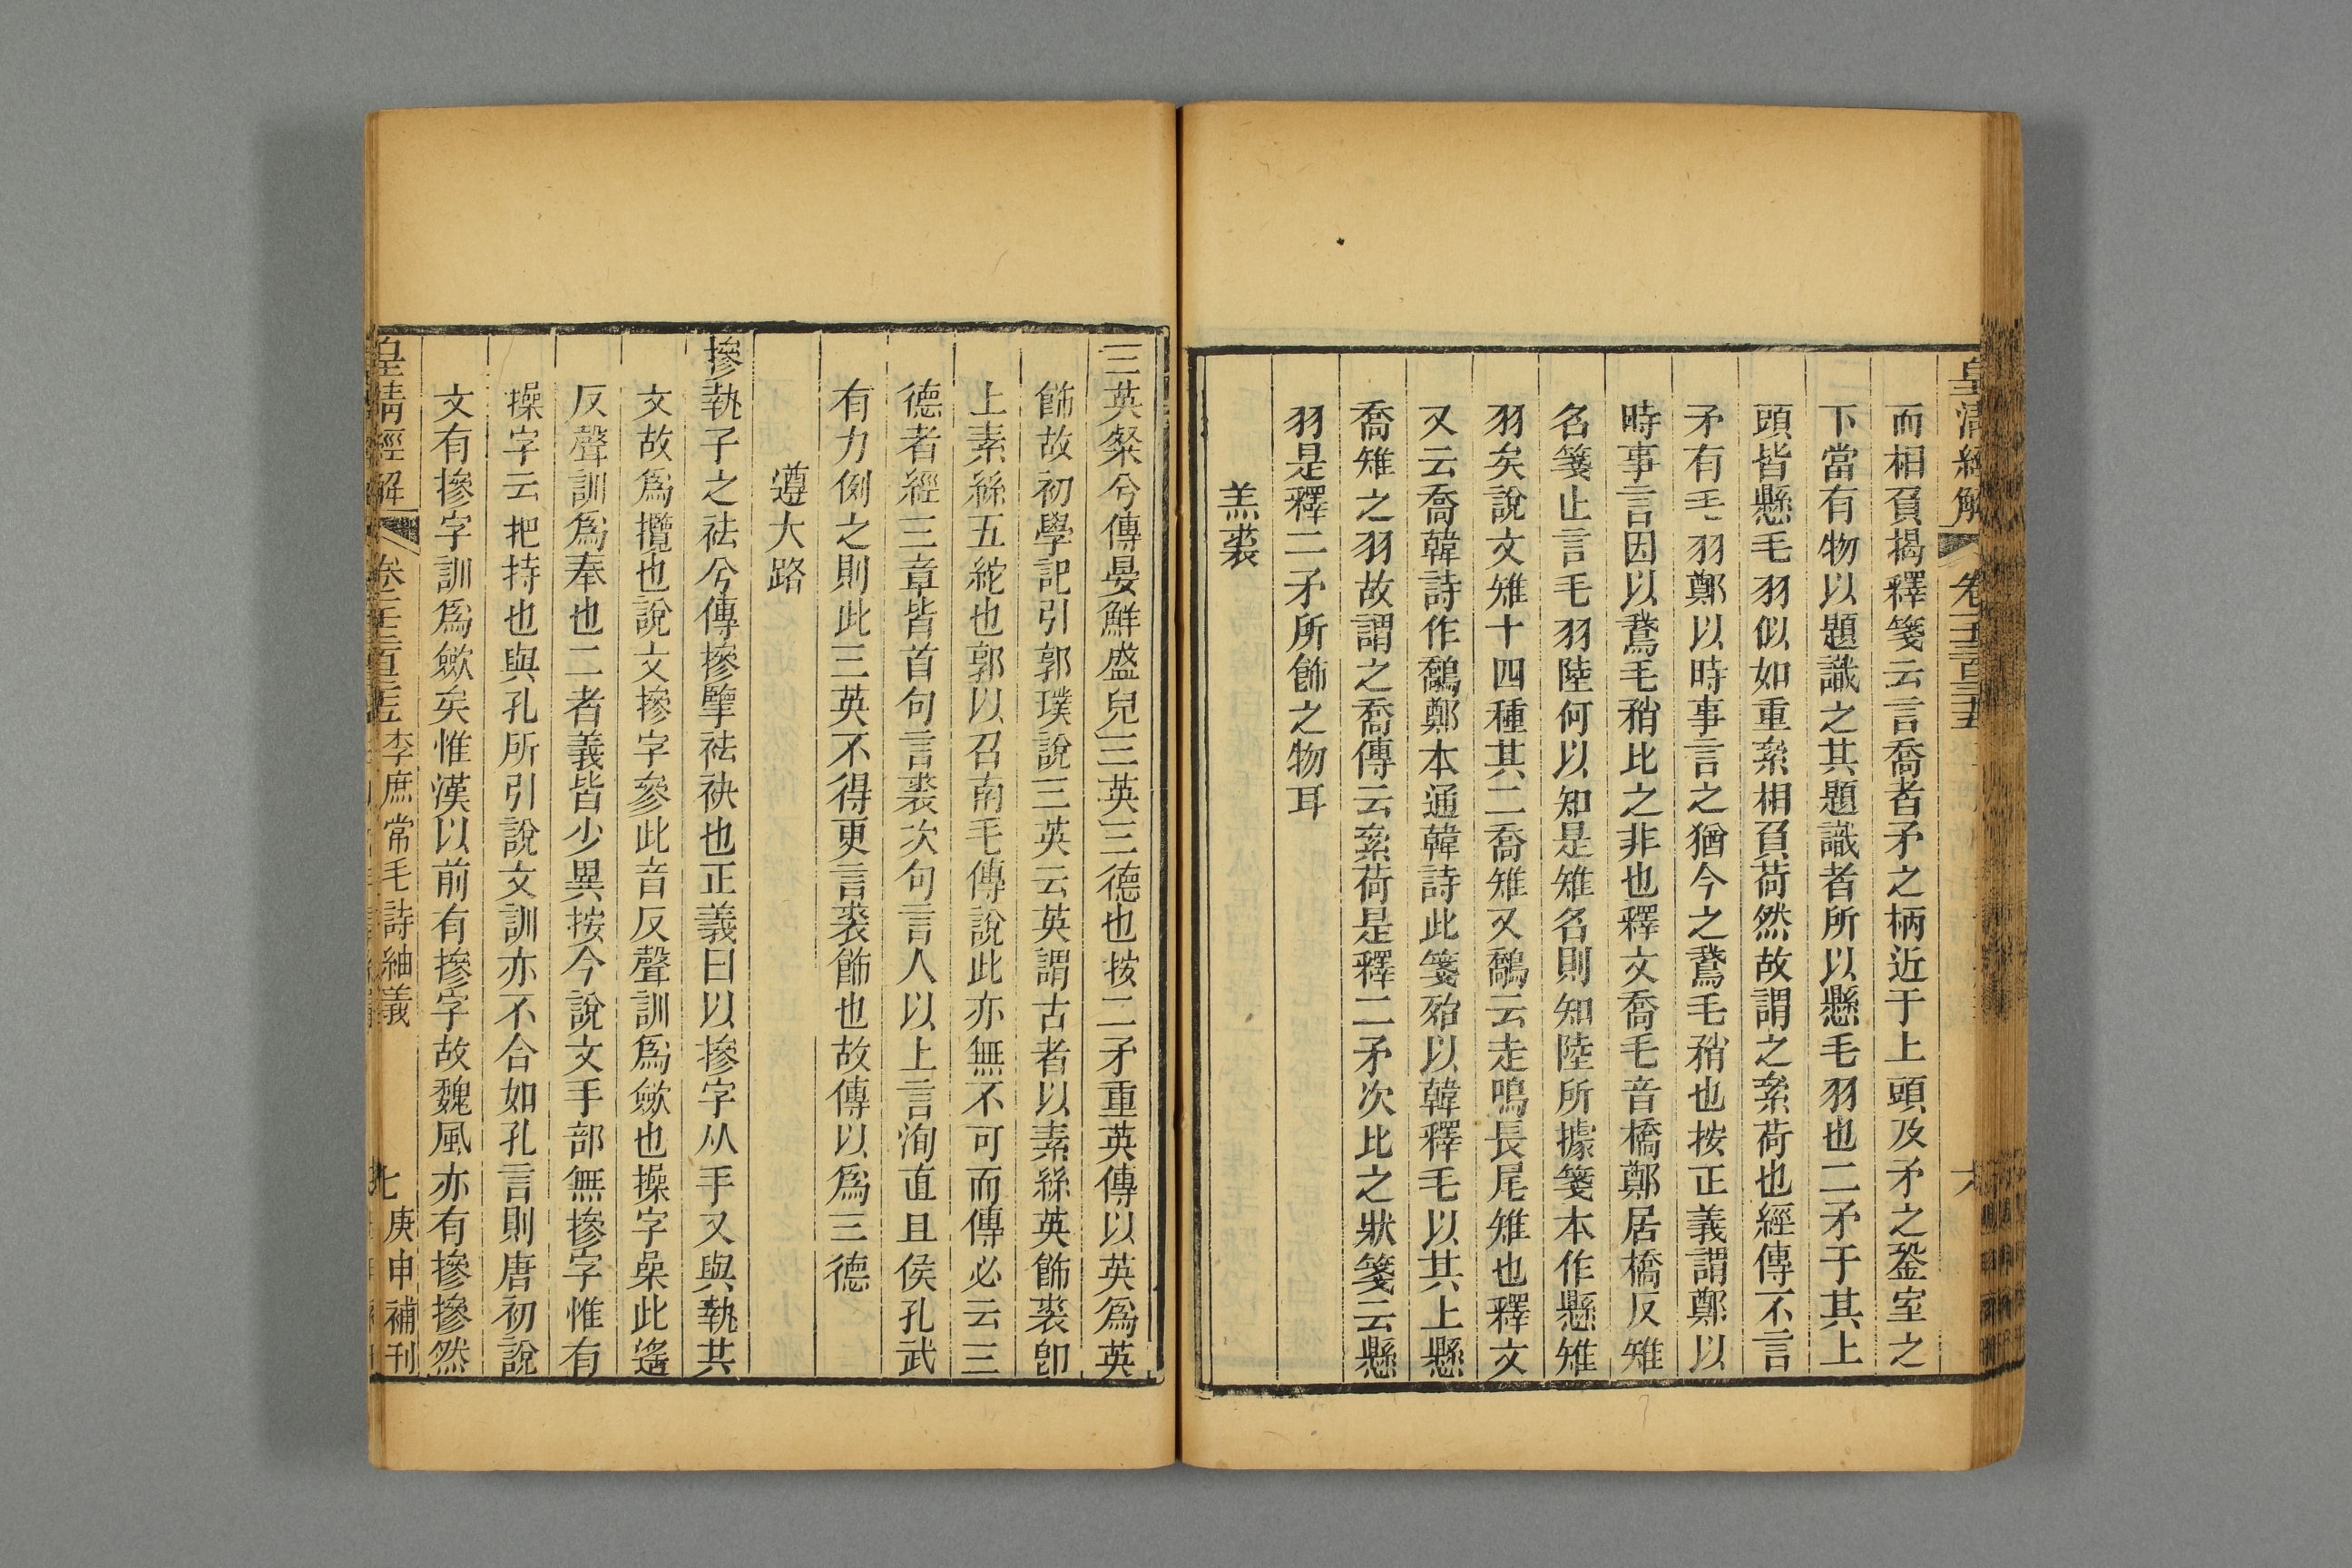 皇清經解 卷一千三百三十五 六
而相負揭釋箋云言喬者矛之柄近于上頭及矛之銎室之
下當有物以題識之其題識者所以懸毛羽也二矛于其上
頭皆懸毛羽似如重絫相負荷然故謂之絫荷也經傳不言
矛有毛羽鄭以時事言之猶今之鵞毛矟也按正義謂鄭以
時事言因以鵞毛矟比之非也釋文喬毛音橋鄭居橋反雉
名箋止言毛羽陸何以知是雉名則知陸所據箋本作懸雉
羽矣說文雉十四種其二喬雉又鷮云走鳴長尾雉也釋文
又云喬韓詩作鷮鄭本通韓詩此箋殆以韓釋毛以其上懸
喬雉之羽故謂之喬傳云絫荷是釋二矛次比之狀箋云懸
羽是釋二矛所飾之物耳
羔裘
三英粲兮傳晏鮮盛皃三英三德也按二矛重英傳以英爲英
飾故初學記引郭璞說三英云英謂古者以素絲英飾裘卽
上素絲五紽也郭以召南毛傳說此亦無不可而傳必云三
德者經三章皆首句言裘次句言人以上言洵直且侯孔武
有力例之則此三英不得更言裘飾也故傳以爲三德
遵大路
摻執子之袪兮傳摻擥袪袂也正義曰以摻字从手又與執共
文故爲攬也說文摻字參此音反聲訓爲斂也操字喿此遙
反聲訓爲奉也二者義皆少異按今說文手部無摻字惟有
操字云把持也與孔所引說文訓亦不合如孔言則唐初說
文有摻字訓爲斂矣惟漢以前有摻字故魏風亦有摻摻然
皇清經解 卷一千三百三十五 李庶常毛詩紬義 七 庚申補刊